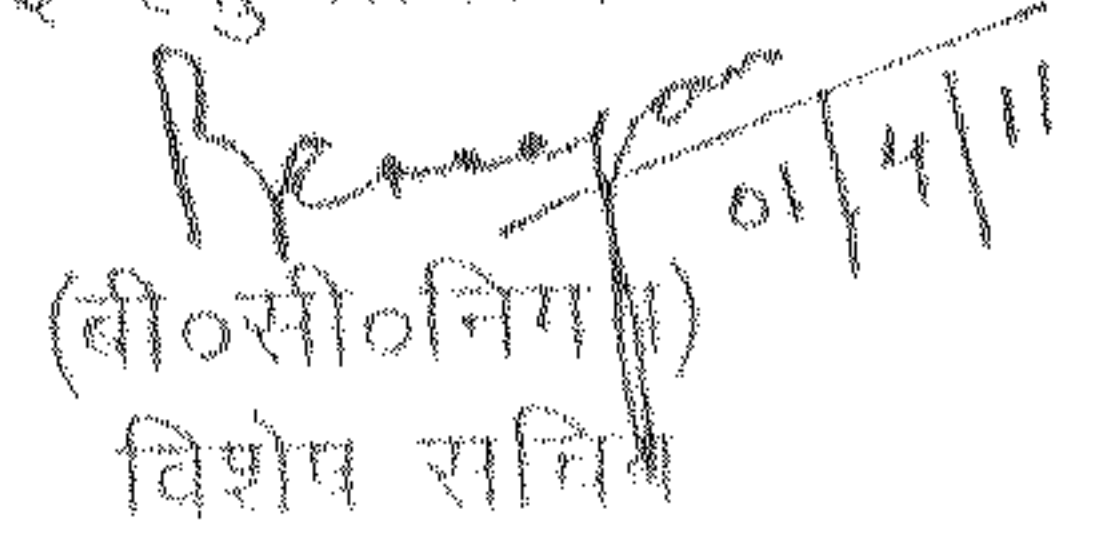 01/4/11
(बी०सी०निगम)
विशेष सचिव